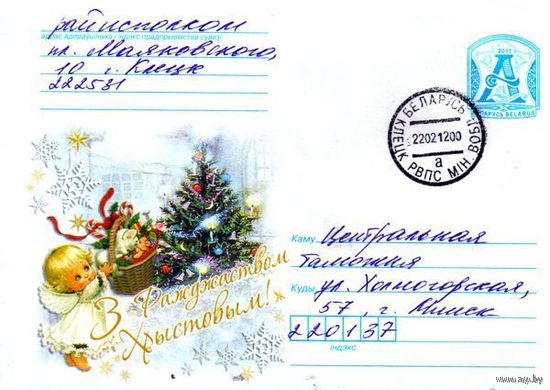 райисполком
адрас адпраўшчыка і індэкс прадпрыемства сувязі
пл. Маяковского,
10 г. Клецк
222531
2011
А
БЕЛАРУСЬ BELARUS
БЕЛАРУСЬ
22021200
а
КЛЕЦК РВПС МІН ВОБЛ
З Ражджаством
Хрыстовым!
Каму Центральная
таможня
Куды ул. Холмогорская,
57, г. Минск
220137
індэкс
www.ay.by